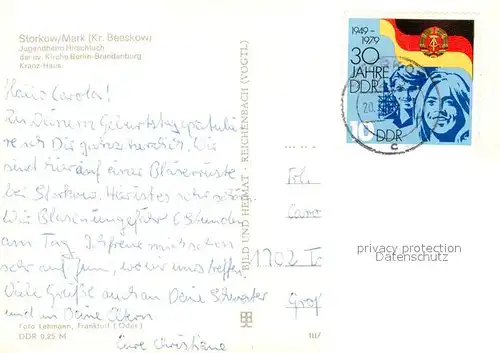 Storkow/Mark (Kr. Beeskow)
Jugendheim Hirschluch
der ev. Kirche Berlin-Brandenburg
Kranz-Haus
Zu Deinem Geburtstag gratulie
re ich Dir ganz herzlich. Wir
sind hier auf einer Bläserrüste
bei Storkow. Hier ist es sehr schön.
Wir Blasen ungefähr 6 Stunden
am Tag. Ich freue mich schon
sehr auf Juni, wo wir uns treffen.
Viele Grüße auch an Deine Schwester
und an Deine Eltern
Eure Christiane
Foto Lehmann, Frankfurt (Oder)
DDR 0,25 M
BILD UND HEIMAT · REICHENBACH (VOGTL)
1949-
1979
30
JAHRE
DDR
10
DDR
20.
c
Frl.
Caro
1702
privacy protection
Datenschutz